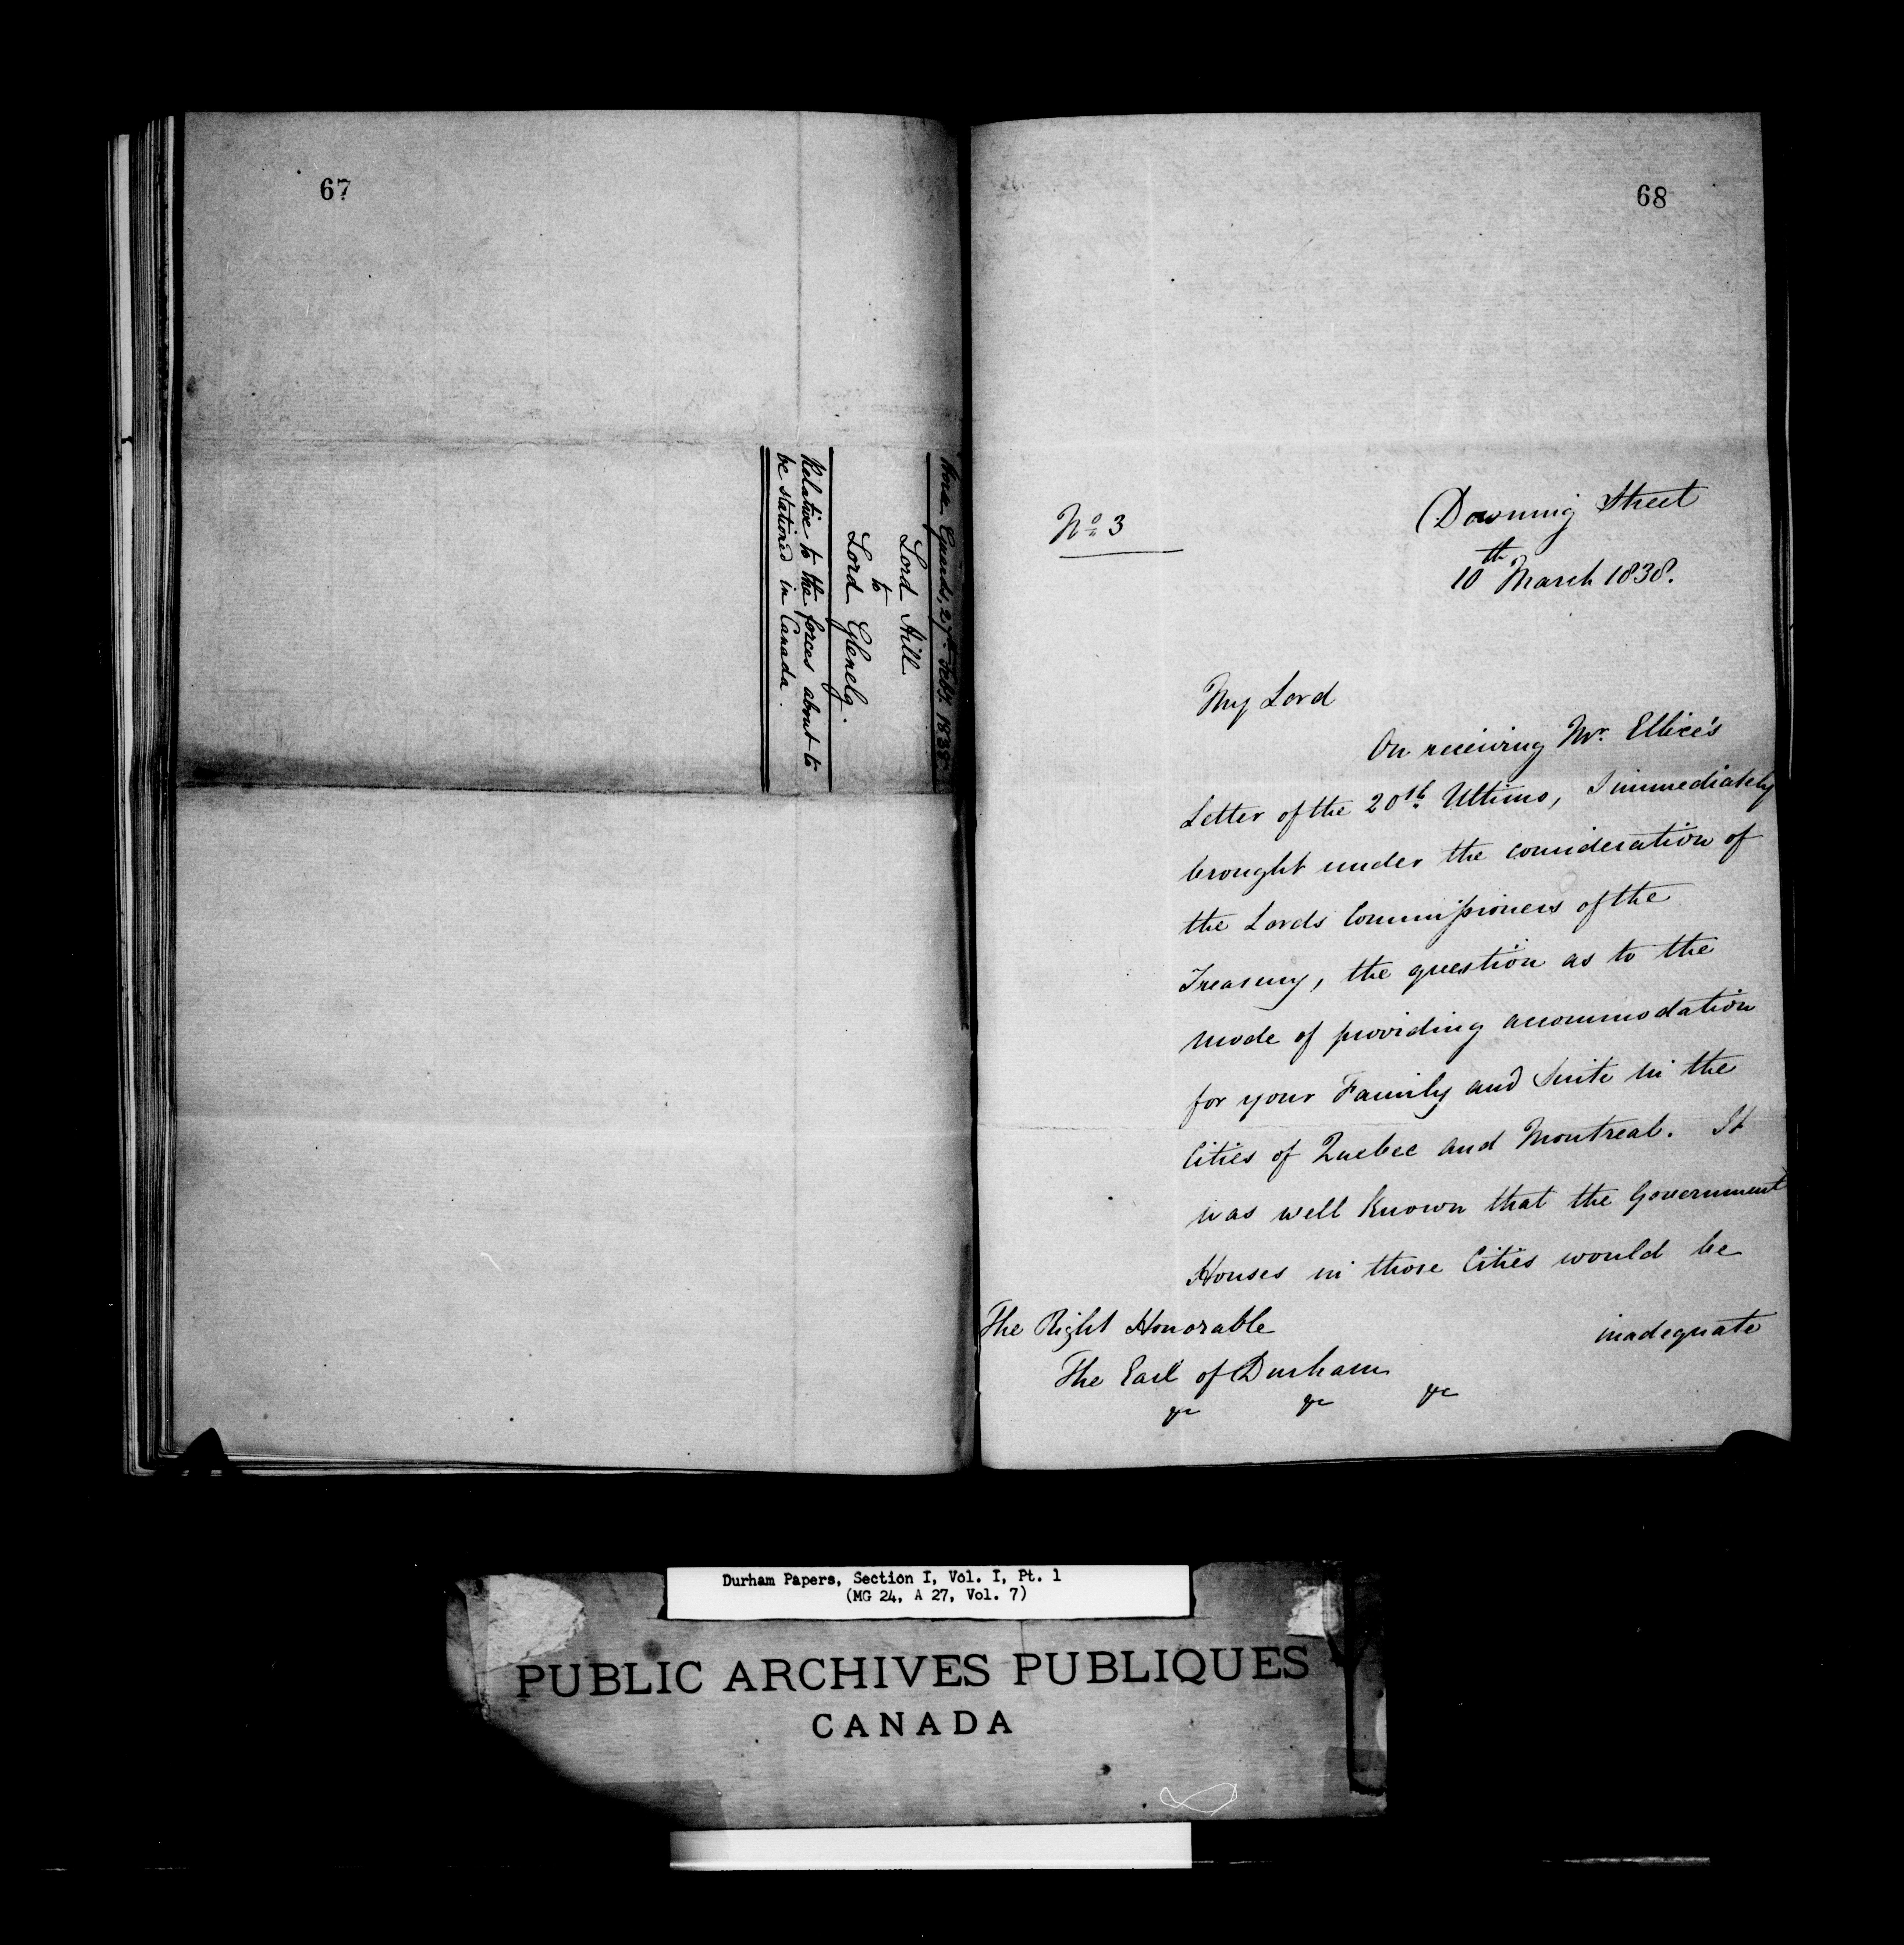 67
Horse Guards, 27th Feby. 1838
Lord Hill
to
Lord Glenelg.
Relative to the forces about to
be stationed in Canada.
68
No 3
Downing Street
10th March 1838.
My Lord
On receiving Mr. Ellice's
Letter of the 20th Ultimo, I immediately
brought under the consideration of
the Lords Commissioners of the
Treasury, the question as to the
mode of providing accommodation
for your Family and Suite in the
Cities of Quebec and Montreal. It
was well known that the Government
Houses in those Cities would be
inadequate
The Right Honorable
The Earl of Durham
&c &c &c
Durham Papers, Section I, Vol. I, Pt. 1
(MG 24, A 27, Vol. 7)
PUBLIC ARCHIVES PUBLIQUES
CANADA